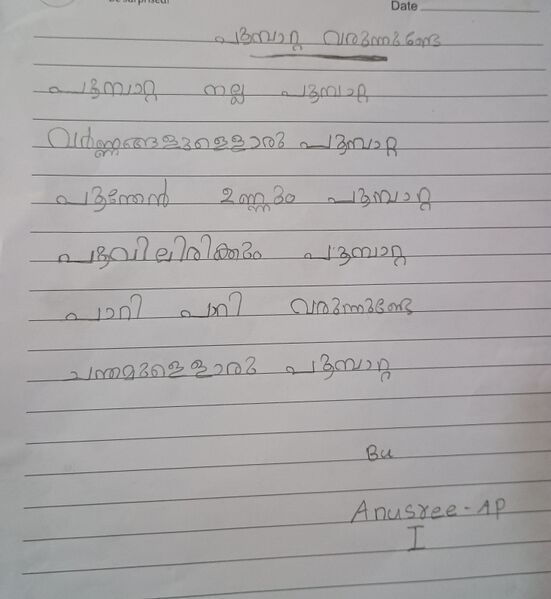 Date
പൂമ്പാറ്റ വരുന്നുണ്ടേ
പൂമ്പാറ്റ നല്ല പൂമ്പാറ്റ
വർണ്ണങ്ങളുള്ളൊരു പൂമ്പാറ്റ
പൂന്തേൻ ഉണ്ണും പൂമ്പാറ്റ
പൂവിലിരിക്കും പൂമ്പാറ്റ
പാറി പാറി വരുന്നുണ്ടേ
ചന്തമുള്ളൊരു പൂമ്പാറ്റ
Bu
Anusree - AP
I